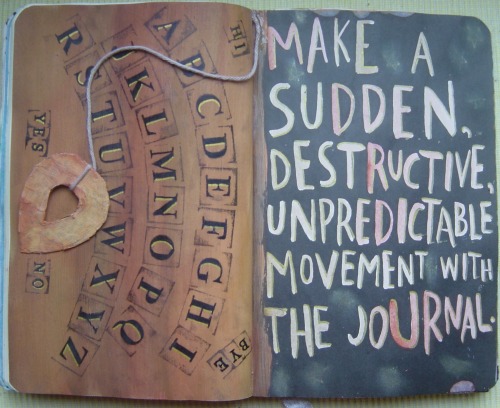 HI BYE
ABCDEFGHI
JKLMNOPQ
RSTUVWXYZ
YES NO
MAKE A
SUDDEN,
DESTRUCTIVE,
UNPREDICTABLE
MOVEMENT WITH
THE JOURNAL.